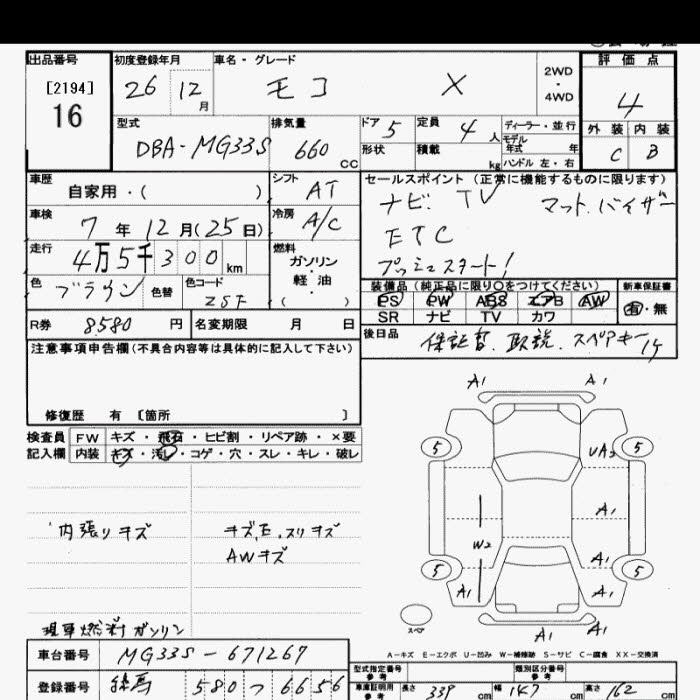 出品番号 初度登録年月 車名・グレード 評価点
[2194] 16
26 12月 モコ X 2WD・4WD 4
型式 排気量 ドア 5 定員 4人 ディーラー・並行 外装 内装
DBA-MG33S 660cc 形状 積載 kg モデル年式 年 C B
ハンドル 左・右
車歴 シフト AT セールスポイント (正常に機能するものに限ります)
自家用・( ) ナビ. TV マット.バイザー
車検 7年12月(25日) 冷房 A/C ETC
走行 4万5千300km 燃料 ガソリン・軽油・( ) プッシュスタート!
色 ブラウン 色替 色コード ZSF 装備品 (純正品に限り○をつけてください) 新車保証書
PS PW ABS エアB AW 有・無
SR ナビ TV カワ
R券 8580円 名変期限 月 日 後日品 保証書. 取説. スペアキー1ケ
注意事項申告欄 (不具合内容等は具体的に記入して下さい)
修復歴 有 [箇所 ]
検査員 FW キズ・飛石・ヒビ割・リペア跡・×要
記入欄 内装 キズ・汚レ・コゲ・穴・スレ・キレ・破レ
A1 A1
5 UA2 5
A1
W2 A1
5 A1 A1 5
A1 A1
スペア
内張りキズ キズ,E.スリキズ
AWキズ
現車燃料ガソリン
A-キズ E-エクボ U-凹み W-補修跡 S-サビ C-腐食 XX-交換済
車台番号 MG33S-671267 型式指定番号 参考 類別区分番号 参考
登録番号 練馬 580 つ 6656 車庫証明用 参考 長さ 339cm 幅 147cm 高さ 162cm